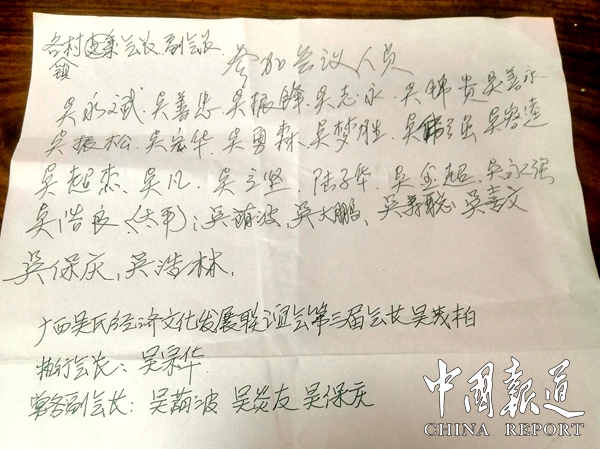 各村 会长 副会长
镇
参加会议人员
吴永斌、吴善忠、吴振锋、吴志永、吴锦贵 吴善永
吴振松、吴宏华、吴勇森、吴梦胜、吴伟强、吴容逵
吴超杰、吴凡、吴立坚、陆子华、吴金超、吴永强
吴浩良、(太平)、吴萌波、吴大鹏、吴寿聪、吴嘉文
吴保庆、吴浩林、
广西吴氏经济文化发展联谊会第三届会长吴茂柏
执行会长:吴宗华
常务副会长:吴萌波 吴炎友 吴保庆
中國報道
CHINA REPORT